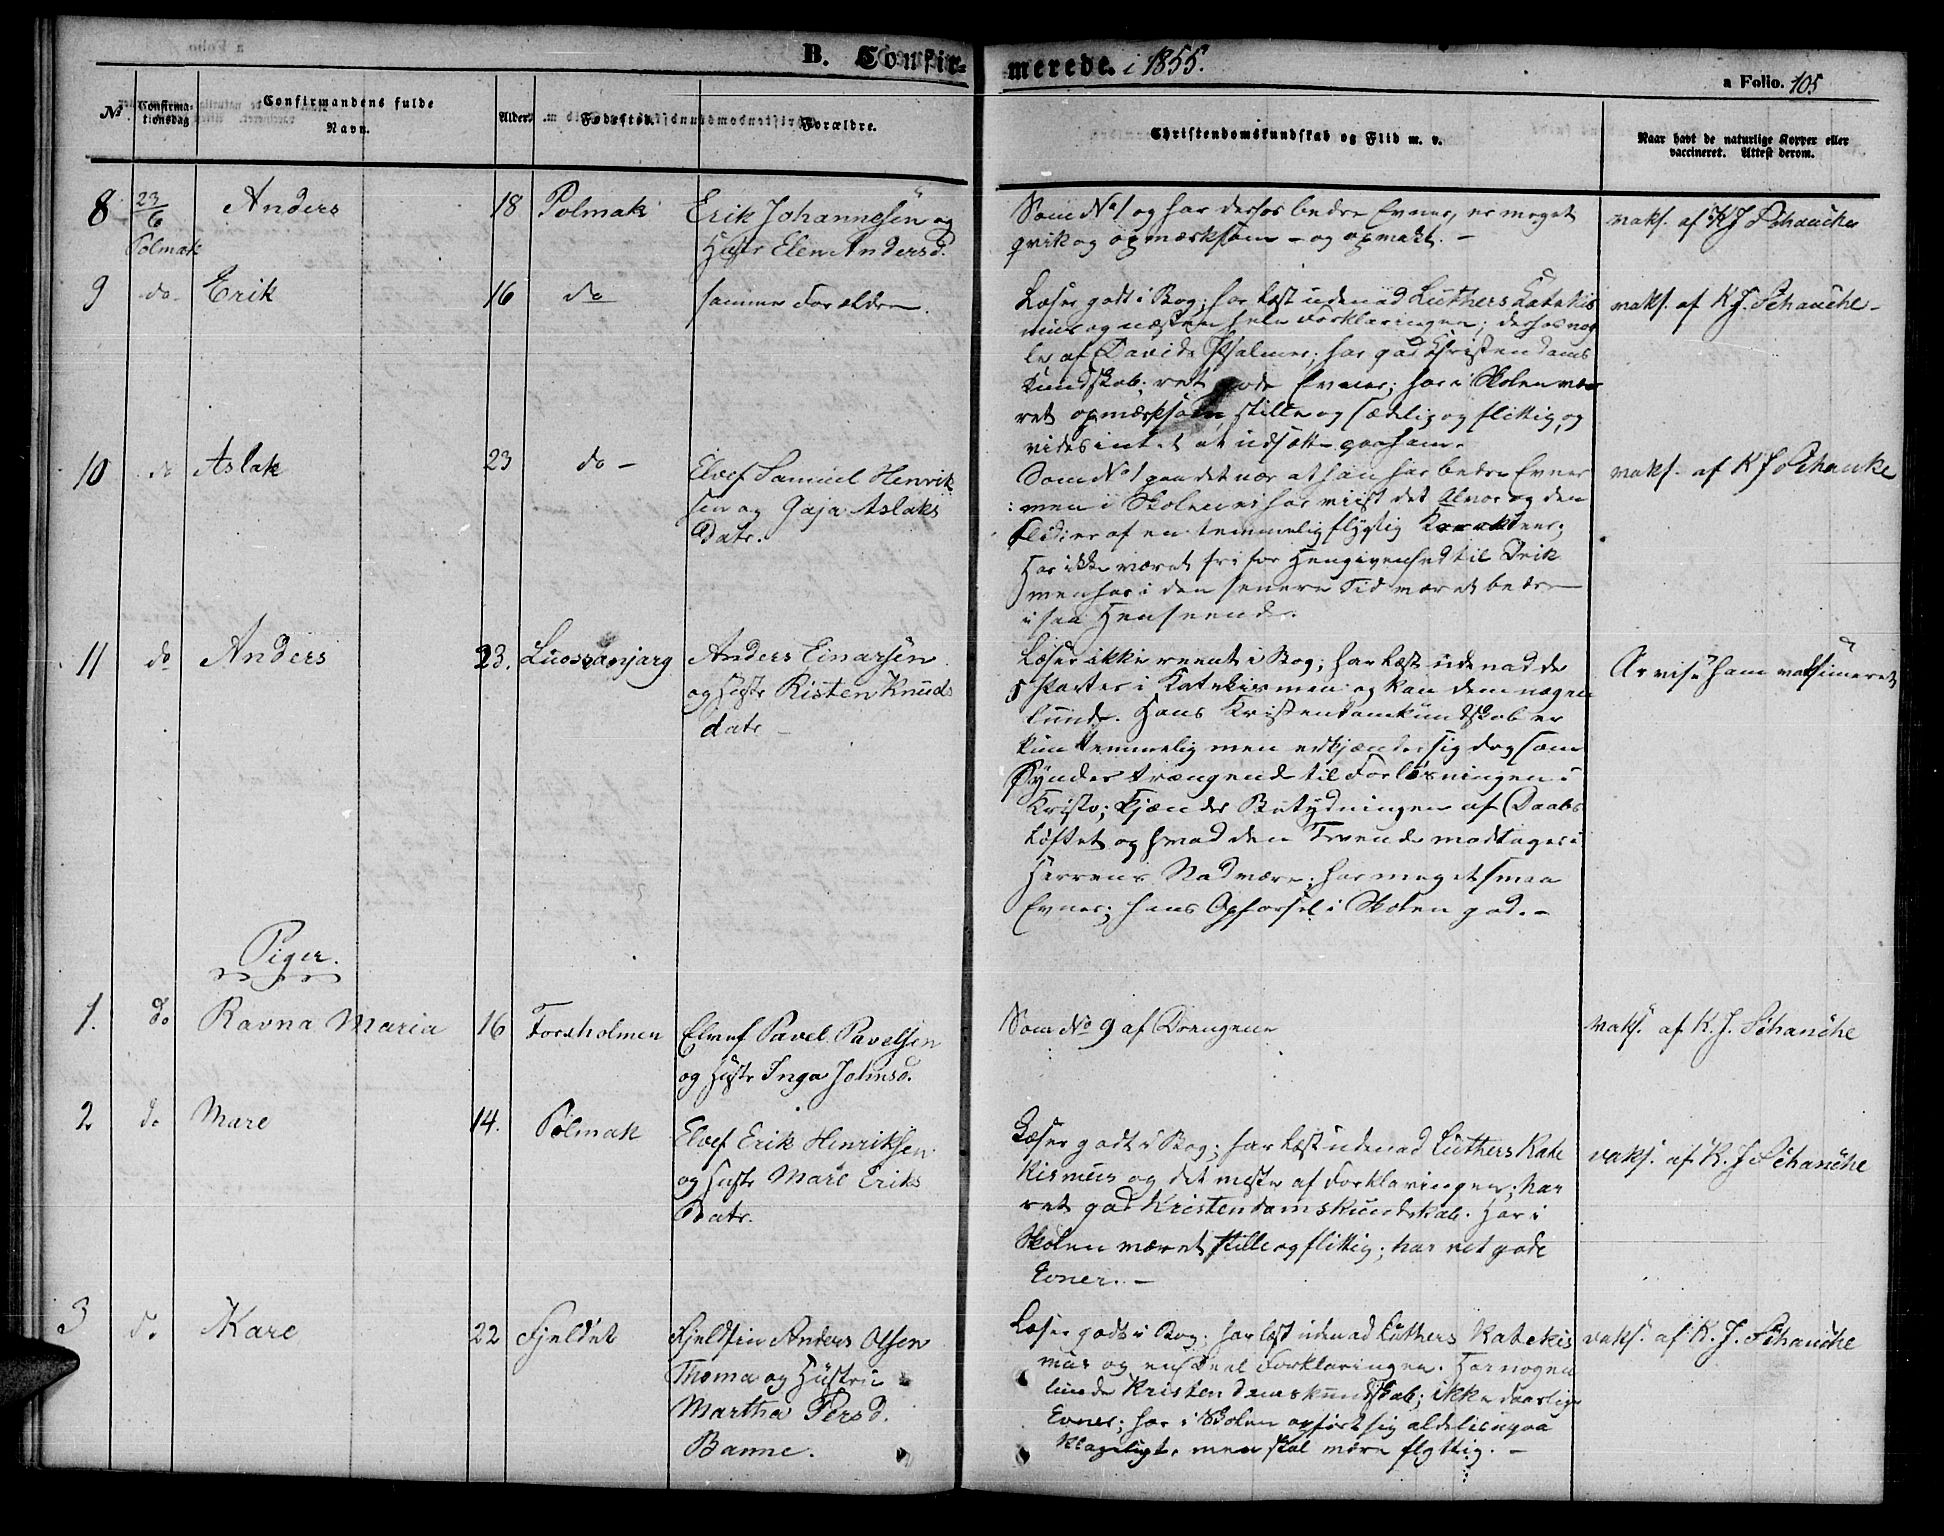 B. Confir-
merede. i 1855.
a Folio. 105
No
Confirma-
tionsdag
Confirmandens fulde
Navn.
Alder.
Fødested.
Forældre.
Christendomskundskab og Flid m. v.
Naar havt de naturlige Kopper eller
vaccineret. Attest derom.
8
23/6
Polmak
Anders
18
Polmak
Erik Johannesen og
Hustr Elen Andersd.
Som No 1 og har derhos bedre Evner, er meget
qvik og opmærksom - og opvakt. -
vaks. af K J Schanche
9
do
Erik
16
do
samme Forældre.
Læser godt i Bog; har læst udenad Luthers Katekis
mus og næsten hele Forklaringen; derhos nog
le af Davids Psalmer; har god Christendoms
kundskab; ret gode Evner; har i Skolen væ
ret opmærksom, stille og sædelig og flittig, og
vides intet at udsætte paa ham.
vaks. af K. J. Schanche
10
do
Aslak
23
do -
Elvef Samuel Henrik
sen og Gaja Aslaks
Datr.
Som No 1 paa det nær at han har bedre Evner
men i Skolen ei har viist det Alvor og den
Flid; er af en temmelig flygtig Karakteer;
Har ikke været fri for Hengivenhed til Drik
men har i den senere Tid været bedre
i saa Henseende.
vaks. af K J Schanke
11
do
Anders
23.
Luossanjarg
Anders Einarsen
og Hustr Risten Knuds
datr -
Læser ikke reent i Bog; har læst udenad de
5 Parter i Katekismen og kan dem nogen
lunde. Hans Kristendomkundskab er
kun temmelig men erkjænder sig dog som
Synder trængende til Forløsningen i
Kristo; kjænder Betydningen af Daabs
Løftet og hvad den Troende modtager i
Herrens Nadvære; har meget smaa
Evner; hans Opførsel i Skolen god. -
Ar vise ham vaksineret
Piger.
1.
do
Ravna Maria
16
Forsholmen
Elvef Pavel Pavelsen
og Hustr Inga Johnsd.
Som No 9 af Drengene
vaks. af K. J. Schanche
2
do
Mare
14.
Polmak
Elvef Erik Henriksen
og Hustr Mare Eriks
Datr.
Læser godt i Bog; har læst udenad Luthers Kate
kismus og det meste af Forklaringen; har
ret god Kristendomskundskab. Har i
Skolen været stille og flittig; har ret gode
Evner. -
vaks. af K. J. Schanche
3
do
Mare
22
Fjeldet
Fjeldfin Anders Olsen
Thoma og Hustrue
Martha Persd.
Banne.
Læser godt i Bog; har læst udenad Luthers Katekis
mus og en Deel Forklaringen. Har nogen
lunde Kristendomskundskab; ikke daarlige
Evner; har i Skolen opført sig aldeles upaa
klageligt, men skal være flygtig. -
vaks. af K. J. Schanche